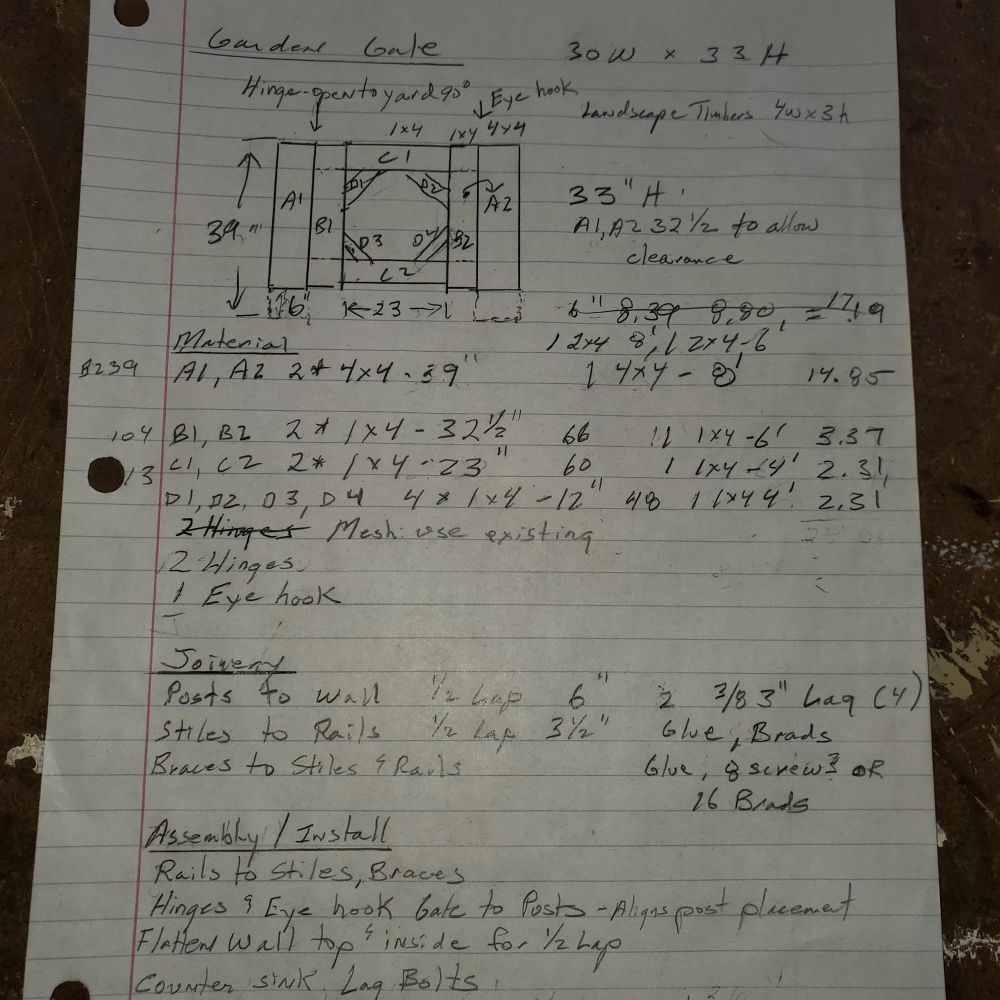 Garden Gate 30W x 33H
Hinge-open to yard 90° Eye hook
Landscape Timbers 4w x 3h
1x4 1x4 4x4
C1
D1 D2
A1 A2
33" H
B1 B2
39"
D3 D4
A1, A2 32 1/2 to allow
clearance
C2
6" 23
6" 8,39 8,80 = 17.19
Material 1 2x4 8', 1 2x4-6'
B239 A1, A2 2* 4x4 - 39" 1 4x4 - 8' 14.85
104 B1, B2 2* 1x4 - 32 1/2" 66 11 1x4 -6' 3.37
13 C1, C2 2* 1x4 - 23" 60 1 1x4 -4' 2.31
D1, D2, D3, D4 4* 1x4 -12" 48 1 1x4 4' 2.31
2 Hinges Mesh: use existing
2 Hinges
1 Eye hook
Joinery
Posts to Wall 1/2 Lap 6" 2 3/8 3" Lag (4)
Stiles to Rails 1/2 Lap 3 1/2" Glue, Brads
Braces to Stiles & Rails Glue, 8 screws OR
16 Brads
Assembly / Install
Rails to Stiles, Braces
Hinges & Eye hook Gate to Posts - Aligns post placement
Flatten Wall top & inside for 1/2 Lap
Counter sink Lag Bolts